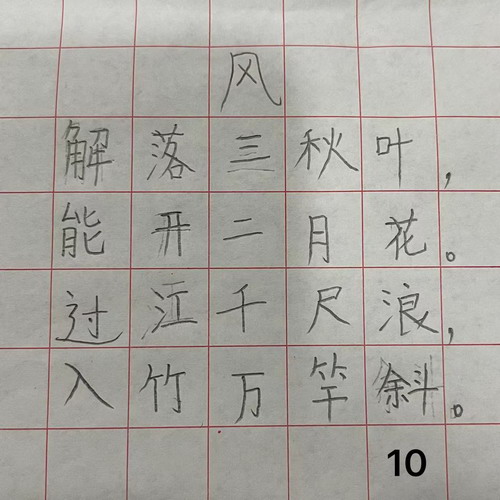 风
解落三秋叶，
能开二月花。
过江千尺浪，
入竹万竿斜。
10